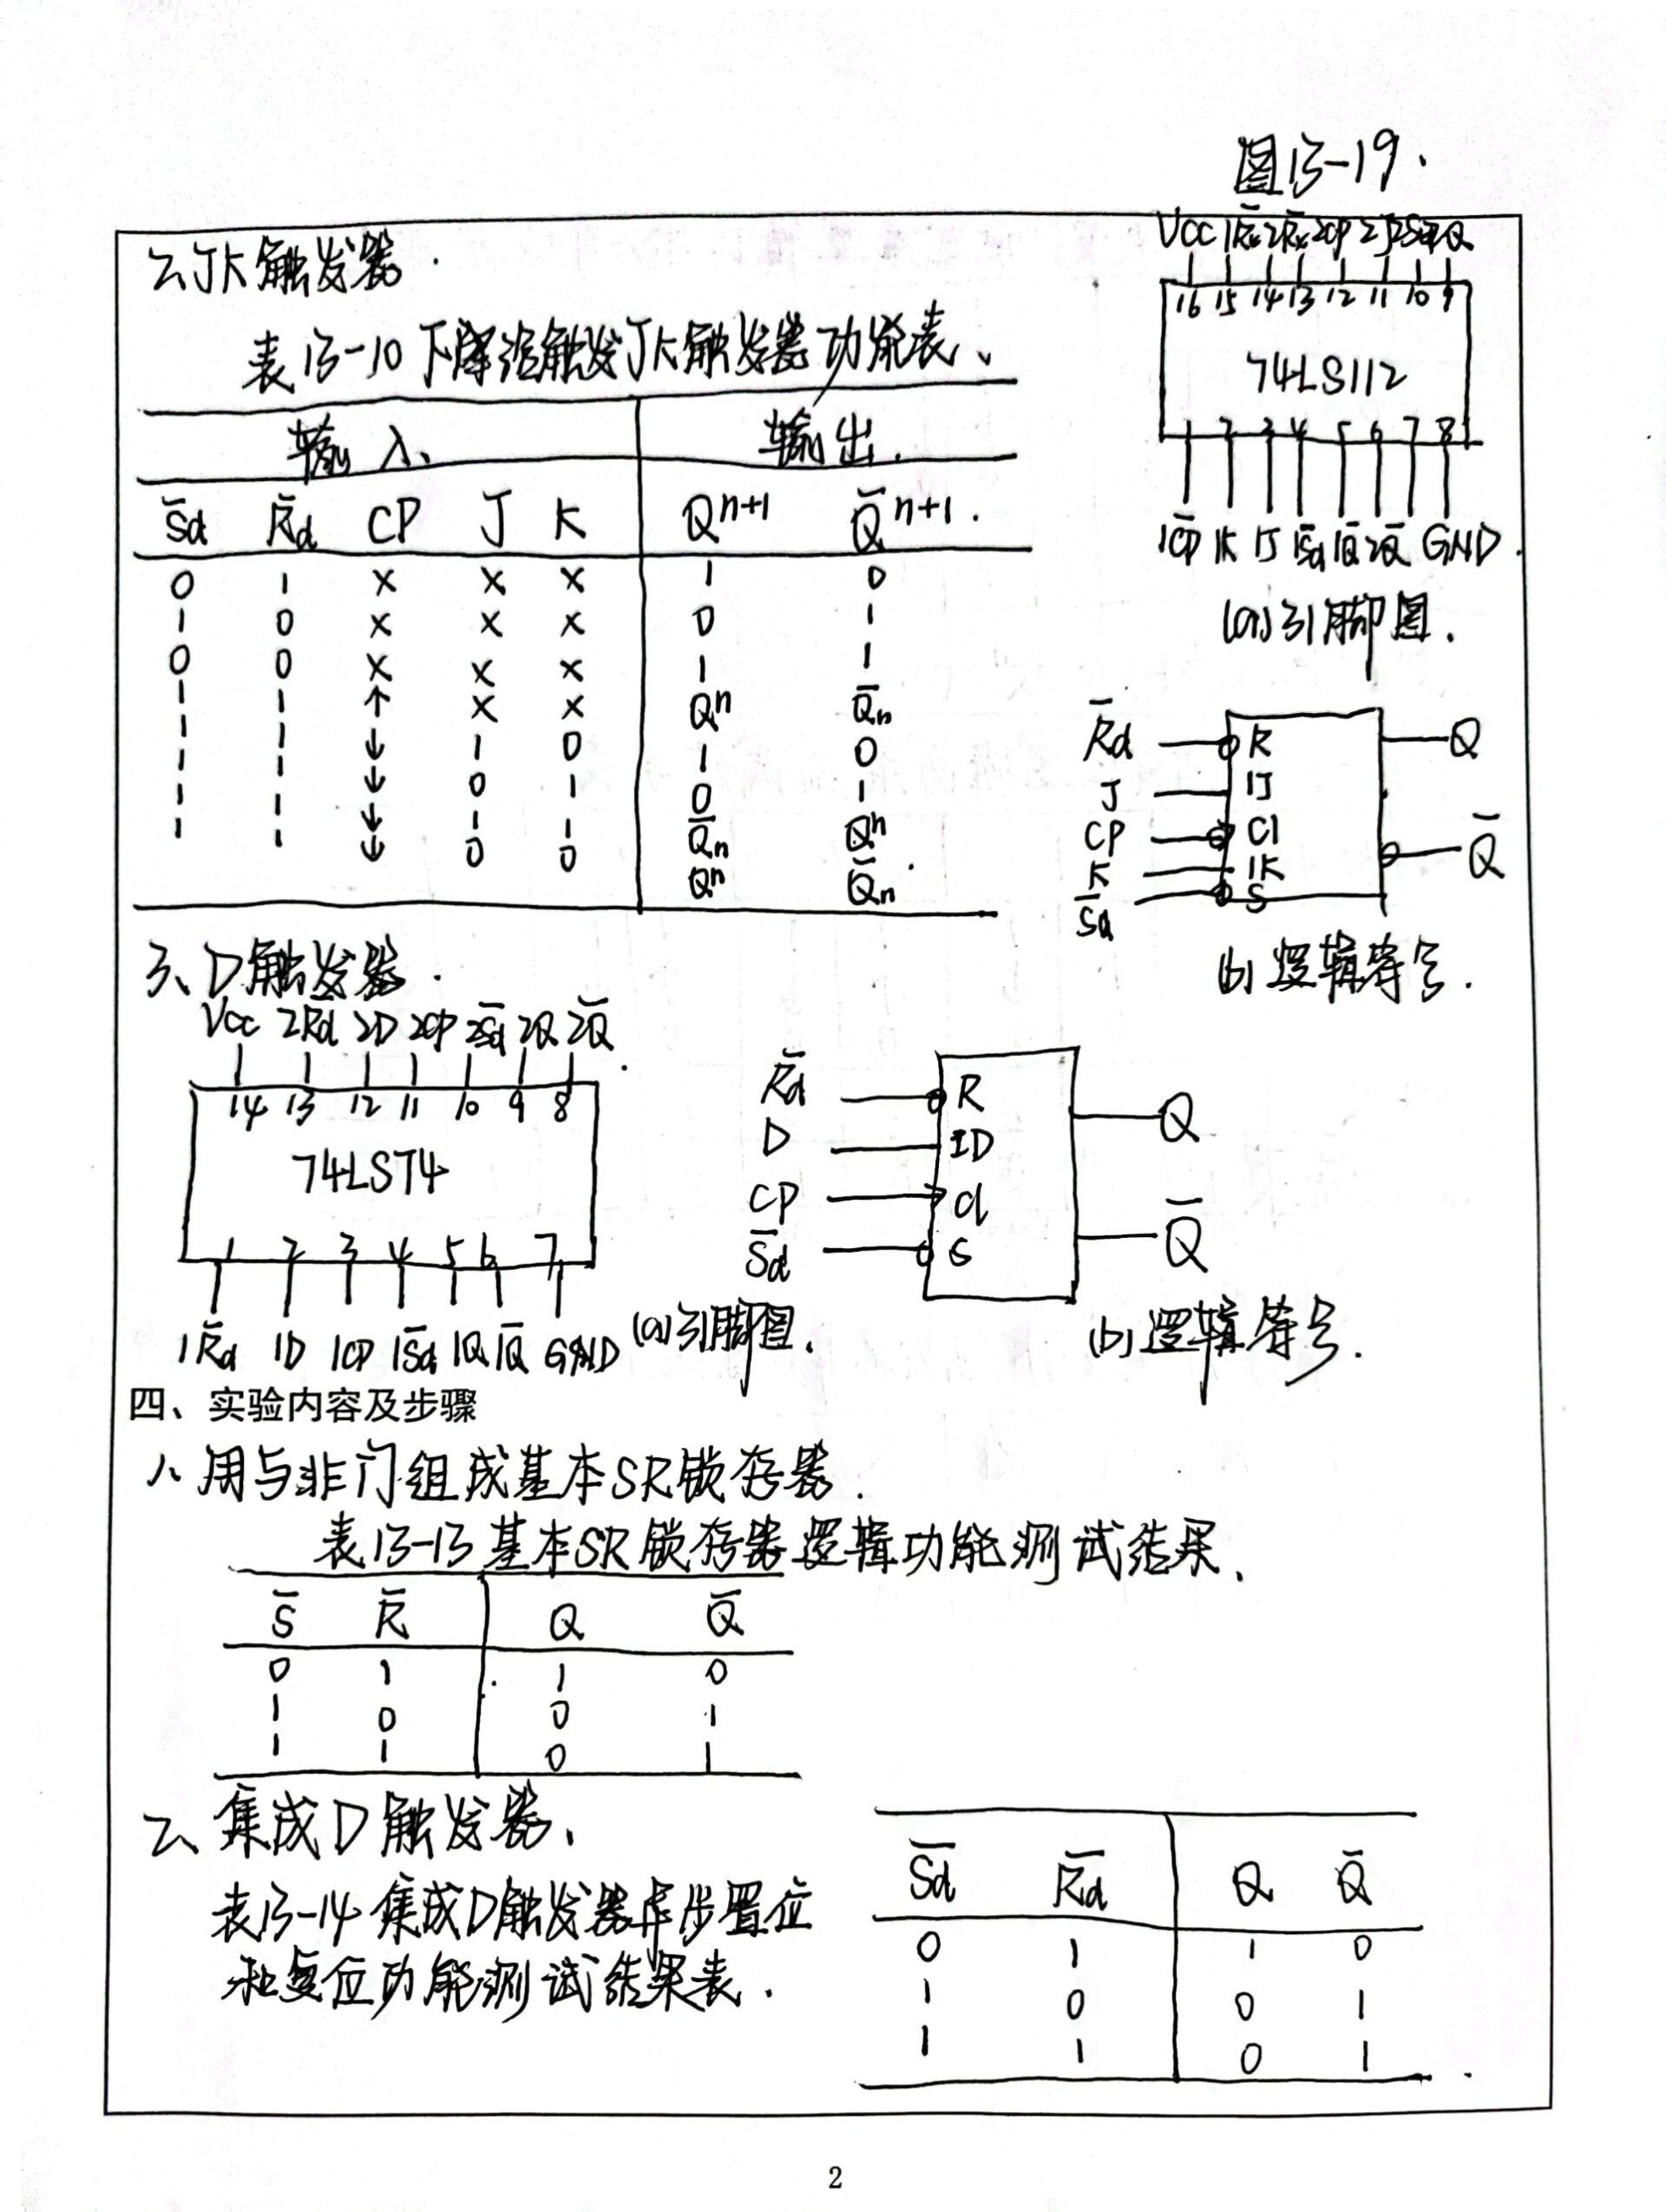 图13-19.
二、JK触发器.
表13-10 下降沿触发JK触发器功能表、
输入、 输出.
S̄d R̄d CP J K Qⁿ⁺¹ Q̄ⁿ⁺¹.
0 1 × × × 1 0
1 0 × × × 0 1
0 0 × × × 1 1
1 1 ↑ × × Qⁿ Q̄n
1 1 ↓ 1 0 1 0
1 1 ↓ 0 1 0 1
1 1 ↓ 1 1 Q̄n Qⁿ
1 1 ↓ 0 0 Qⁿ Q̄n.
VCC 1R̄d 2R̄d 2CP 2J 2Q
16 15 14 13 12 11 10 9
74LS112
1 2 3 4 5 6 7 8
1C̄P 1K 1J 1S̄d 1Q̄ 2Q̄ GND.
(a)引脚图.
R̄d R Q
J 1J
CP C1
K 1K Q̄
S̄d S
(b)逻辑符号.
三、D触发器.
Vcc 2R̄d 2D 2CP 2S̄d 2Q 2Q̄.
14 13 12 11 10 9 8
74LS74
1 2 3 4 5 6 7
1R̄d 1D 1CP 1S̄d 1Q 1Q̄ GND
(a)引脚图.
R̄d R Q
D 1D
CP C1 Q̄
S̄d S
(b)逻辑符号.
四、实验内容及步骤
1、用与非门组成基本SR锁存器.
表13-13 基本SR锁存器逻辑功能测试结果、
S̄ R̄ Q Q̄
0 1 1 0
1 0 0 1
1 1 0 1
二、集成D触发器、
表13-14 集成D触发器异步置位
和复位功能测试结果表.
S̄d R̄d Q Q̄
0 1 1 0
1 0 0 1
1 1 0 1
2